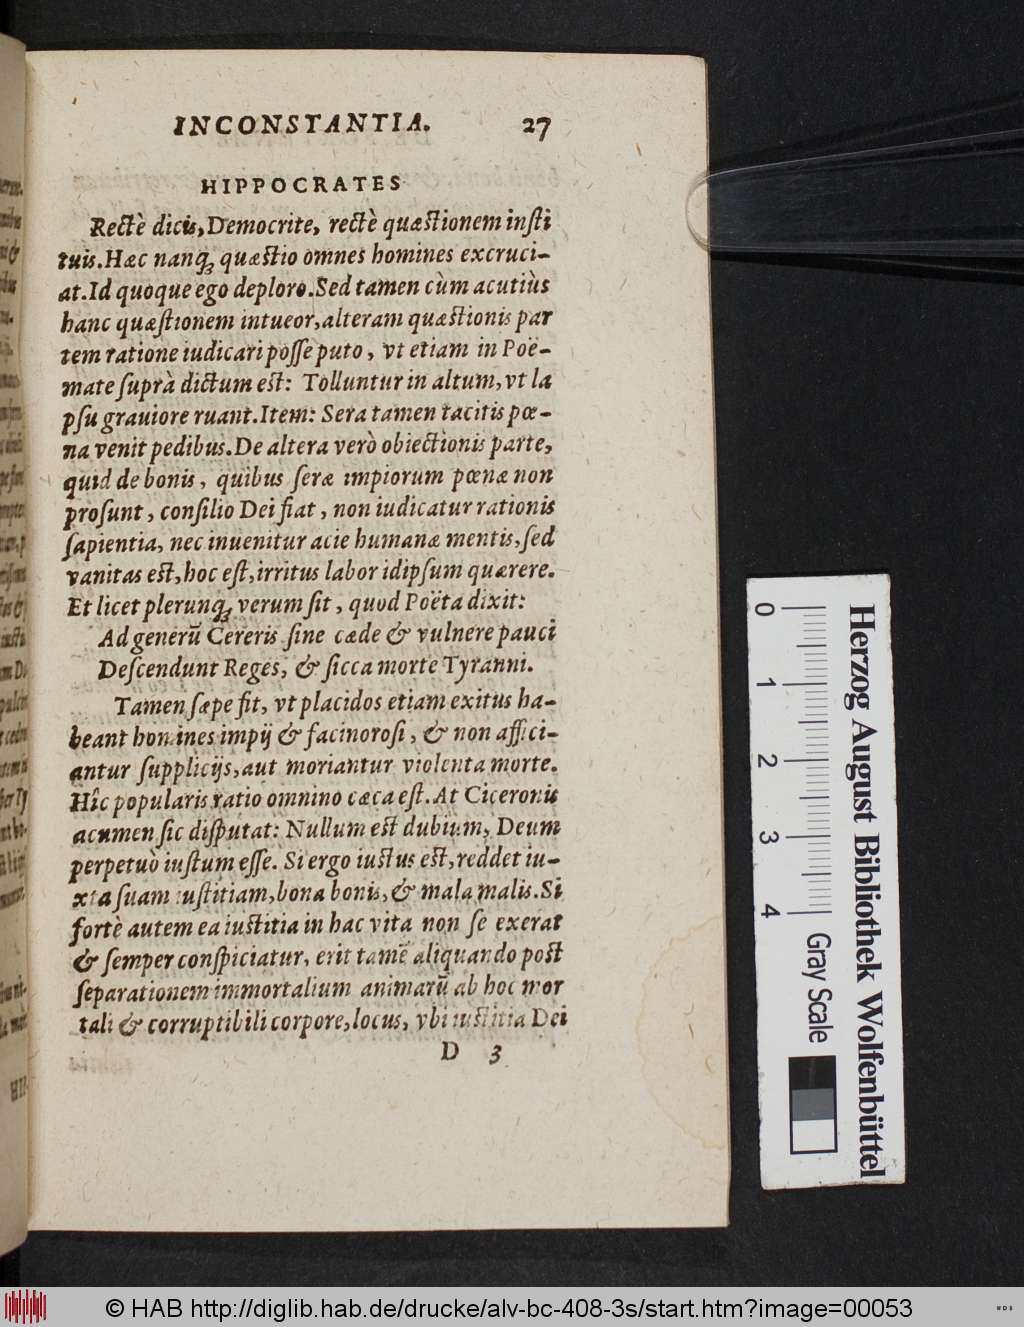 INCONSTANTIA. 27
HIPPOCRATES
Rectè dicis, Democrite, rectè quæstionem insti
tuis. Hæc nanq; quæstio omnes homines excruci-
at. Id quoque ego deploro. Sed tamen cùm acutiùs
hanc quæstionem intueor, alteram quæstionis par
tem ratione iudicari posse puto, vt etiam in Poë-
mate suprà dictum est: Tolluntur in altum, vt la
psu grauiore ruant. Item: Sera tamen tacitis pœ-
na venit pedibus. De altera verò obiectionis parte,
quid de bonis, quibus seræ impiorum pœnæ non
prosunt, consilio Dei fiat, non iudicatur rationis
sapientia, nec inuenitur acie humanæ mentis, sed
vanitas est, hoc est, irritus labor id ipsum quærere.
Et licet plerunq; verum sit, quod Poëta dixit:
Ad generũ Cereris sine cæde & vulnere pauci
Descendunt Reges, & sicca morte Tyranni.
Tamen sæpe fit, vt placidos etiam exitus ha-
beant homines impij & facinorosi, & non affici-
antur supplicijs, aut moriantur violenta morte.
Hîc popularis ratio omnino cæca est. At Ciceronis
acumen sic disputat: Nullum est dubium, Deum
perpetuò iustum esse. Si ergo iustus est, reddet iu-
xta suam iustitiam, bona bonis, & mala malis. Si
fortè autem ea iustitia in hac vita non se exerat
& semper conspiciatur, erit tamẽ aliquando post
separationem immortalium animarũ ab hoc mor
tali & corruptibili corpore, locus, vbi iustitia Dei
D 3
0 1 2 3 4
Gray Scale
Herzog August Bibliothek Wolfenbüttel
© HAB http://diglib.hab.de/drucke/alv-bc-408-3s/start.htm?image=00053